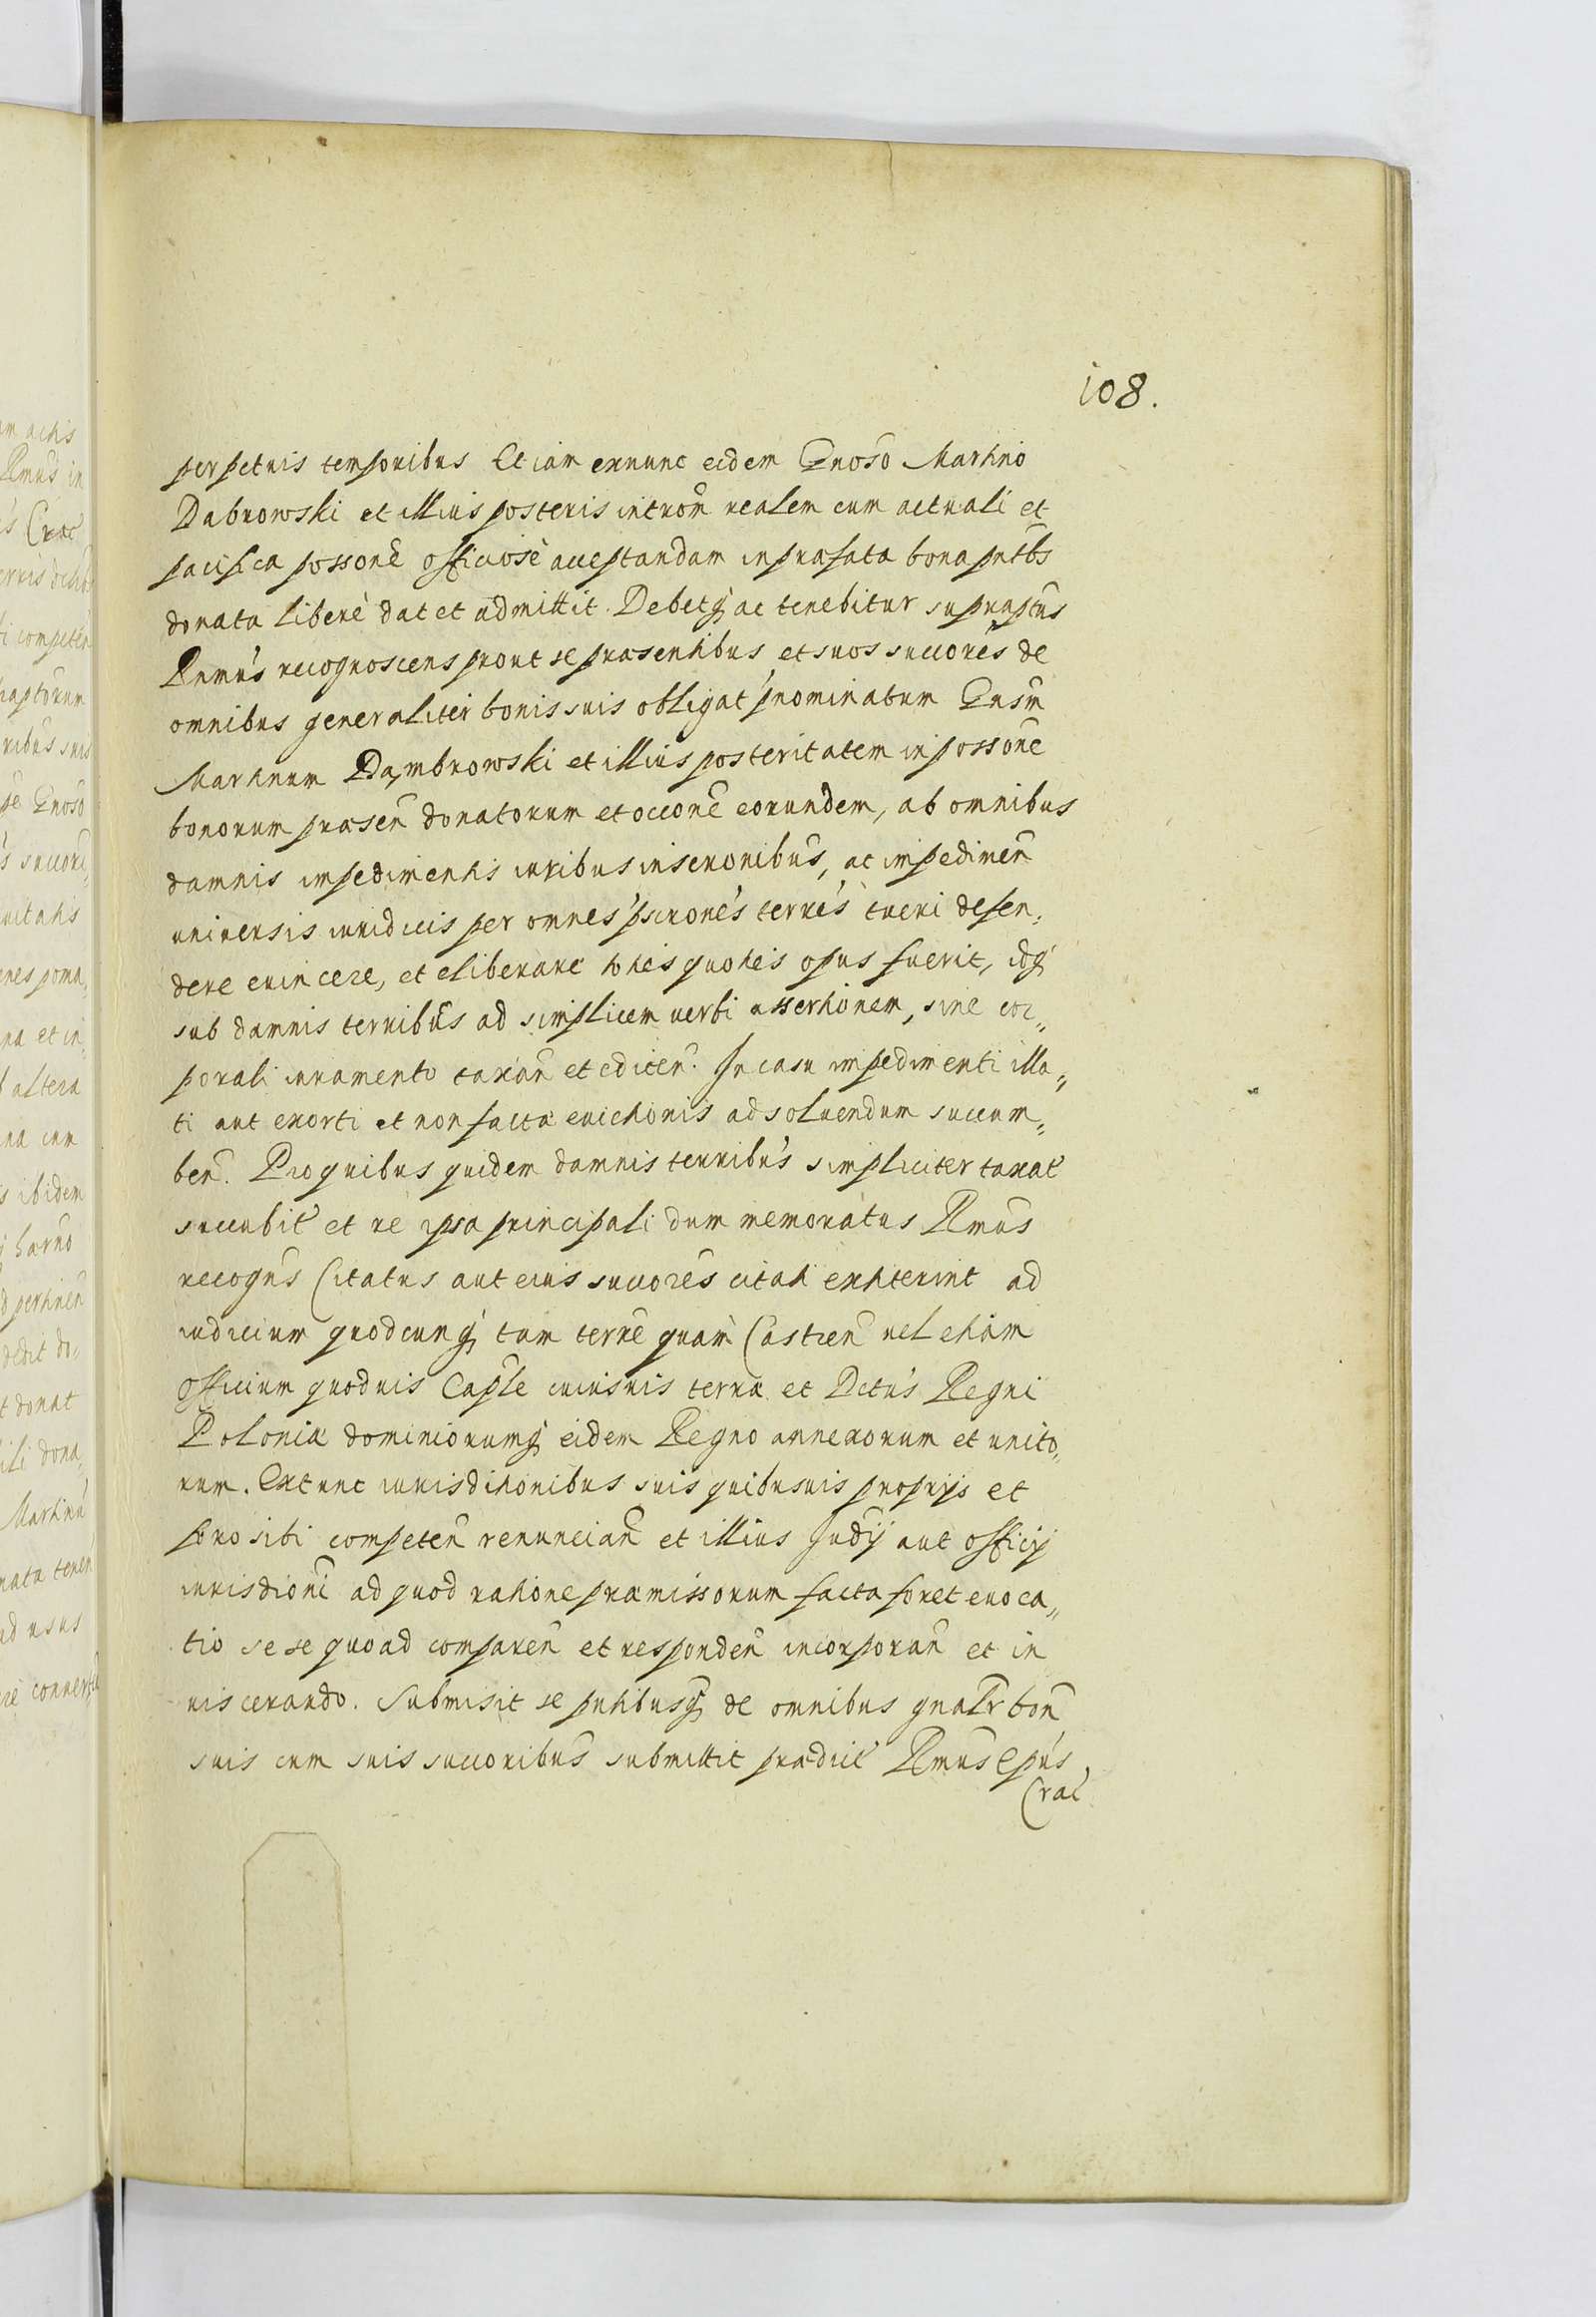 108.
perpetuis temporibus Et iam exnunc eidem Gnoso Martino
Dabrowski et illius posteris intrõm realem cum actuali et
pacifica possonẽ officiosè acceptandam in præfata bona pntbs
donata liberè dat et admittit. Debetq ac tenebitur supraptus
Rmus recognoscens prout se præsentibus et suos succores de
omnibus generaliter bonis suis obligat pnominatum Gnsm
Martinum Dąmbrowski et illius posteritatem in possonẽ
bonorum præsen donatorum et occonẽ eorundem, ab omnibus
damnis impedimentis iuribus inscronibus, ac impedimen
universis iuridicis per omnes pscrones terres tueri defen,
dere evincere, et eliberare toties quoties opus fuerit, idq
sub damnis terribus ad simplicem verbi assertionem, sine cor„
porali iuramento taxan et edicen. In casu impedimenti illa„
ti aut exorti et non factæ evictionis ad solvendum succum„
ben. Pro quibus quidem damnis terribus simpliciter taxat
succubit et re ipsa principali dum memoratus Rmus
recogns Citatus aut eius succores citati extiterint ad
iudicium quodcunq tam terre quam Castren vel etiam
officium quoduis Caple cuiusuis terræ et Dctus Regni
Poloniæ dominiorumq eidem Regno annexorum et unito„
rum. Extunc iurisditionibus suis quibusuis proprijs et
foro sibi competen renuncian et illius Judij aut officij
iurisdioni ad quod ratione præmissorum facta foret evoca„
tio sese quoad comparen et responden incorporan et in
viscerando. Submisit se pntibusq de omnibus gnalr bon
suis cum suis succoribus submittit prædict Rmus Epus
Crac